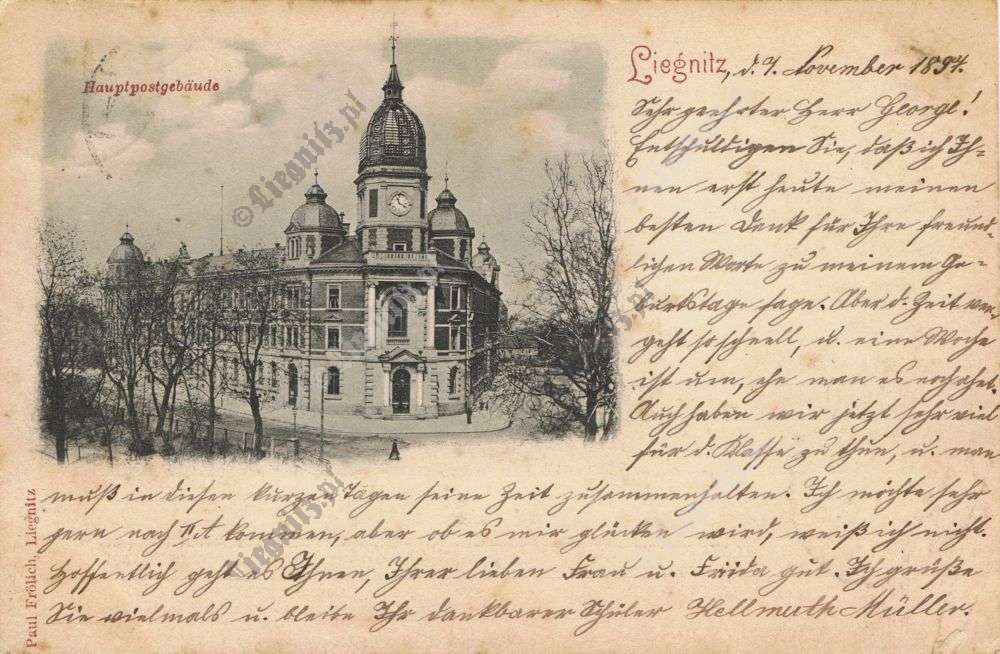 Hauptpostgebäude
Liegnitz, d. 7. November 1897.
Sehr geehrter Herr George!
Entschuldigen Sie, daß ich Ih-
nen erst heute meinen
besten Dank für Ihre freund-
lichen Worte zu meinem Ge-
burtstage sage. Aber d. Zeit ver-
geht so schnell, u. eine Woche
ist um, ehe man es noch ahnt.
Auch haben wir jetzt sehr viel
für d. Klasse zu thun, u. man
muß in diesen kurzen Tagen seine Zeit zusammenhalten. Ich möchte sehr
gern nach II A kommen, aber ob es mir glücken wird, weiß ich nicht.
Hoffentlich geht es Ihnen, Ihrer lieben Frau u. Frida gut. Ich grüße
Sie vielmals u. bleibe Ihr dankbarer Schüler Hellmuth Müller.
Paul Frölich, Liegnitz
© Liegnitz.pl
Liegnitz.pl